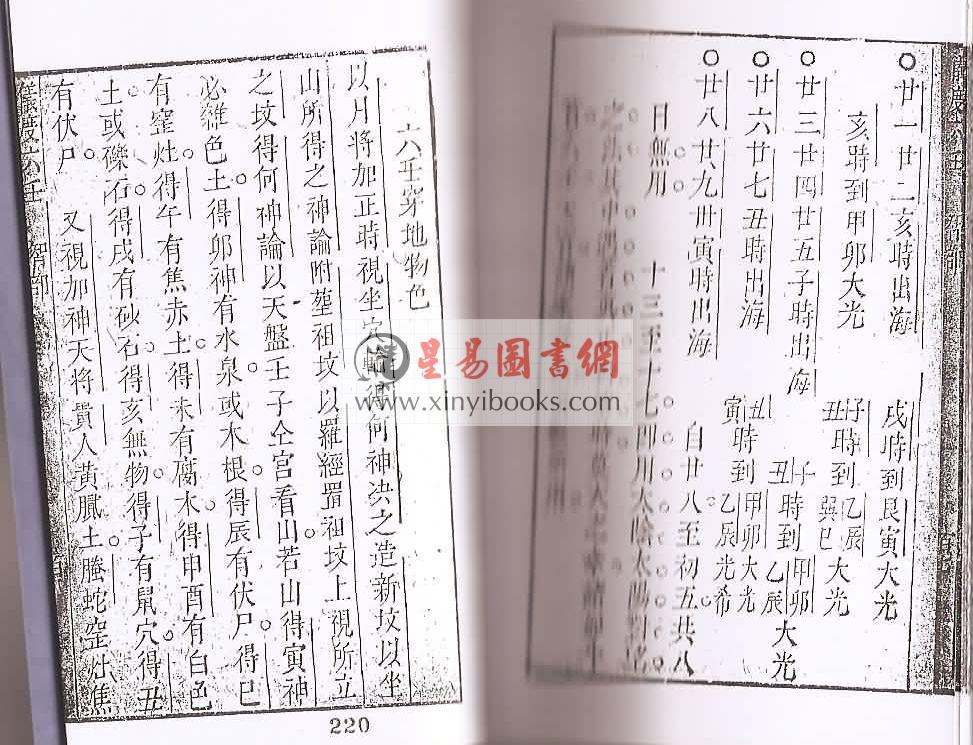 廿一廿二亥時出海 戌時到艮寅大光
亥時到甲卯大光
廿三廿四廿五子時出海 子時到乙辰 丑時到巽巳大光
廿六廿七丑時出海 子時到甲卯 丑時到乙辰大光
廿八廿九卅寅時出海 丑時到甲卯大光 寅時到乙辰光希
日無用 自廿八至初五共八
十三至十七即用太陰太陽對
六壬穿地物色
以月將加正時視坐穴 何神決之造新坟以坐
山所得之神論附塟祖坟以羅經罯祖坟上視所立
之坟得何神論以天盤壬子仝宮看山若山得寅神
必雜色土得卯神有水泉或木根得辰有伏尸得巳
有窰灶得午有焦赤土得未有腐木得申酉有白色
土或礫石得戌有砂石得亥無物得子有鼠穴得丑
有伏尸 又視加神天將貴人黃膩土螣蛇窰灶焦
儀度六壬 智部
220
星易圖書網
www.xinyibooks.com